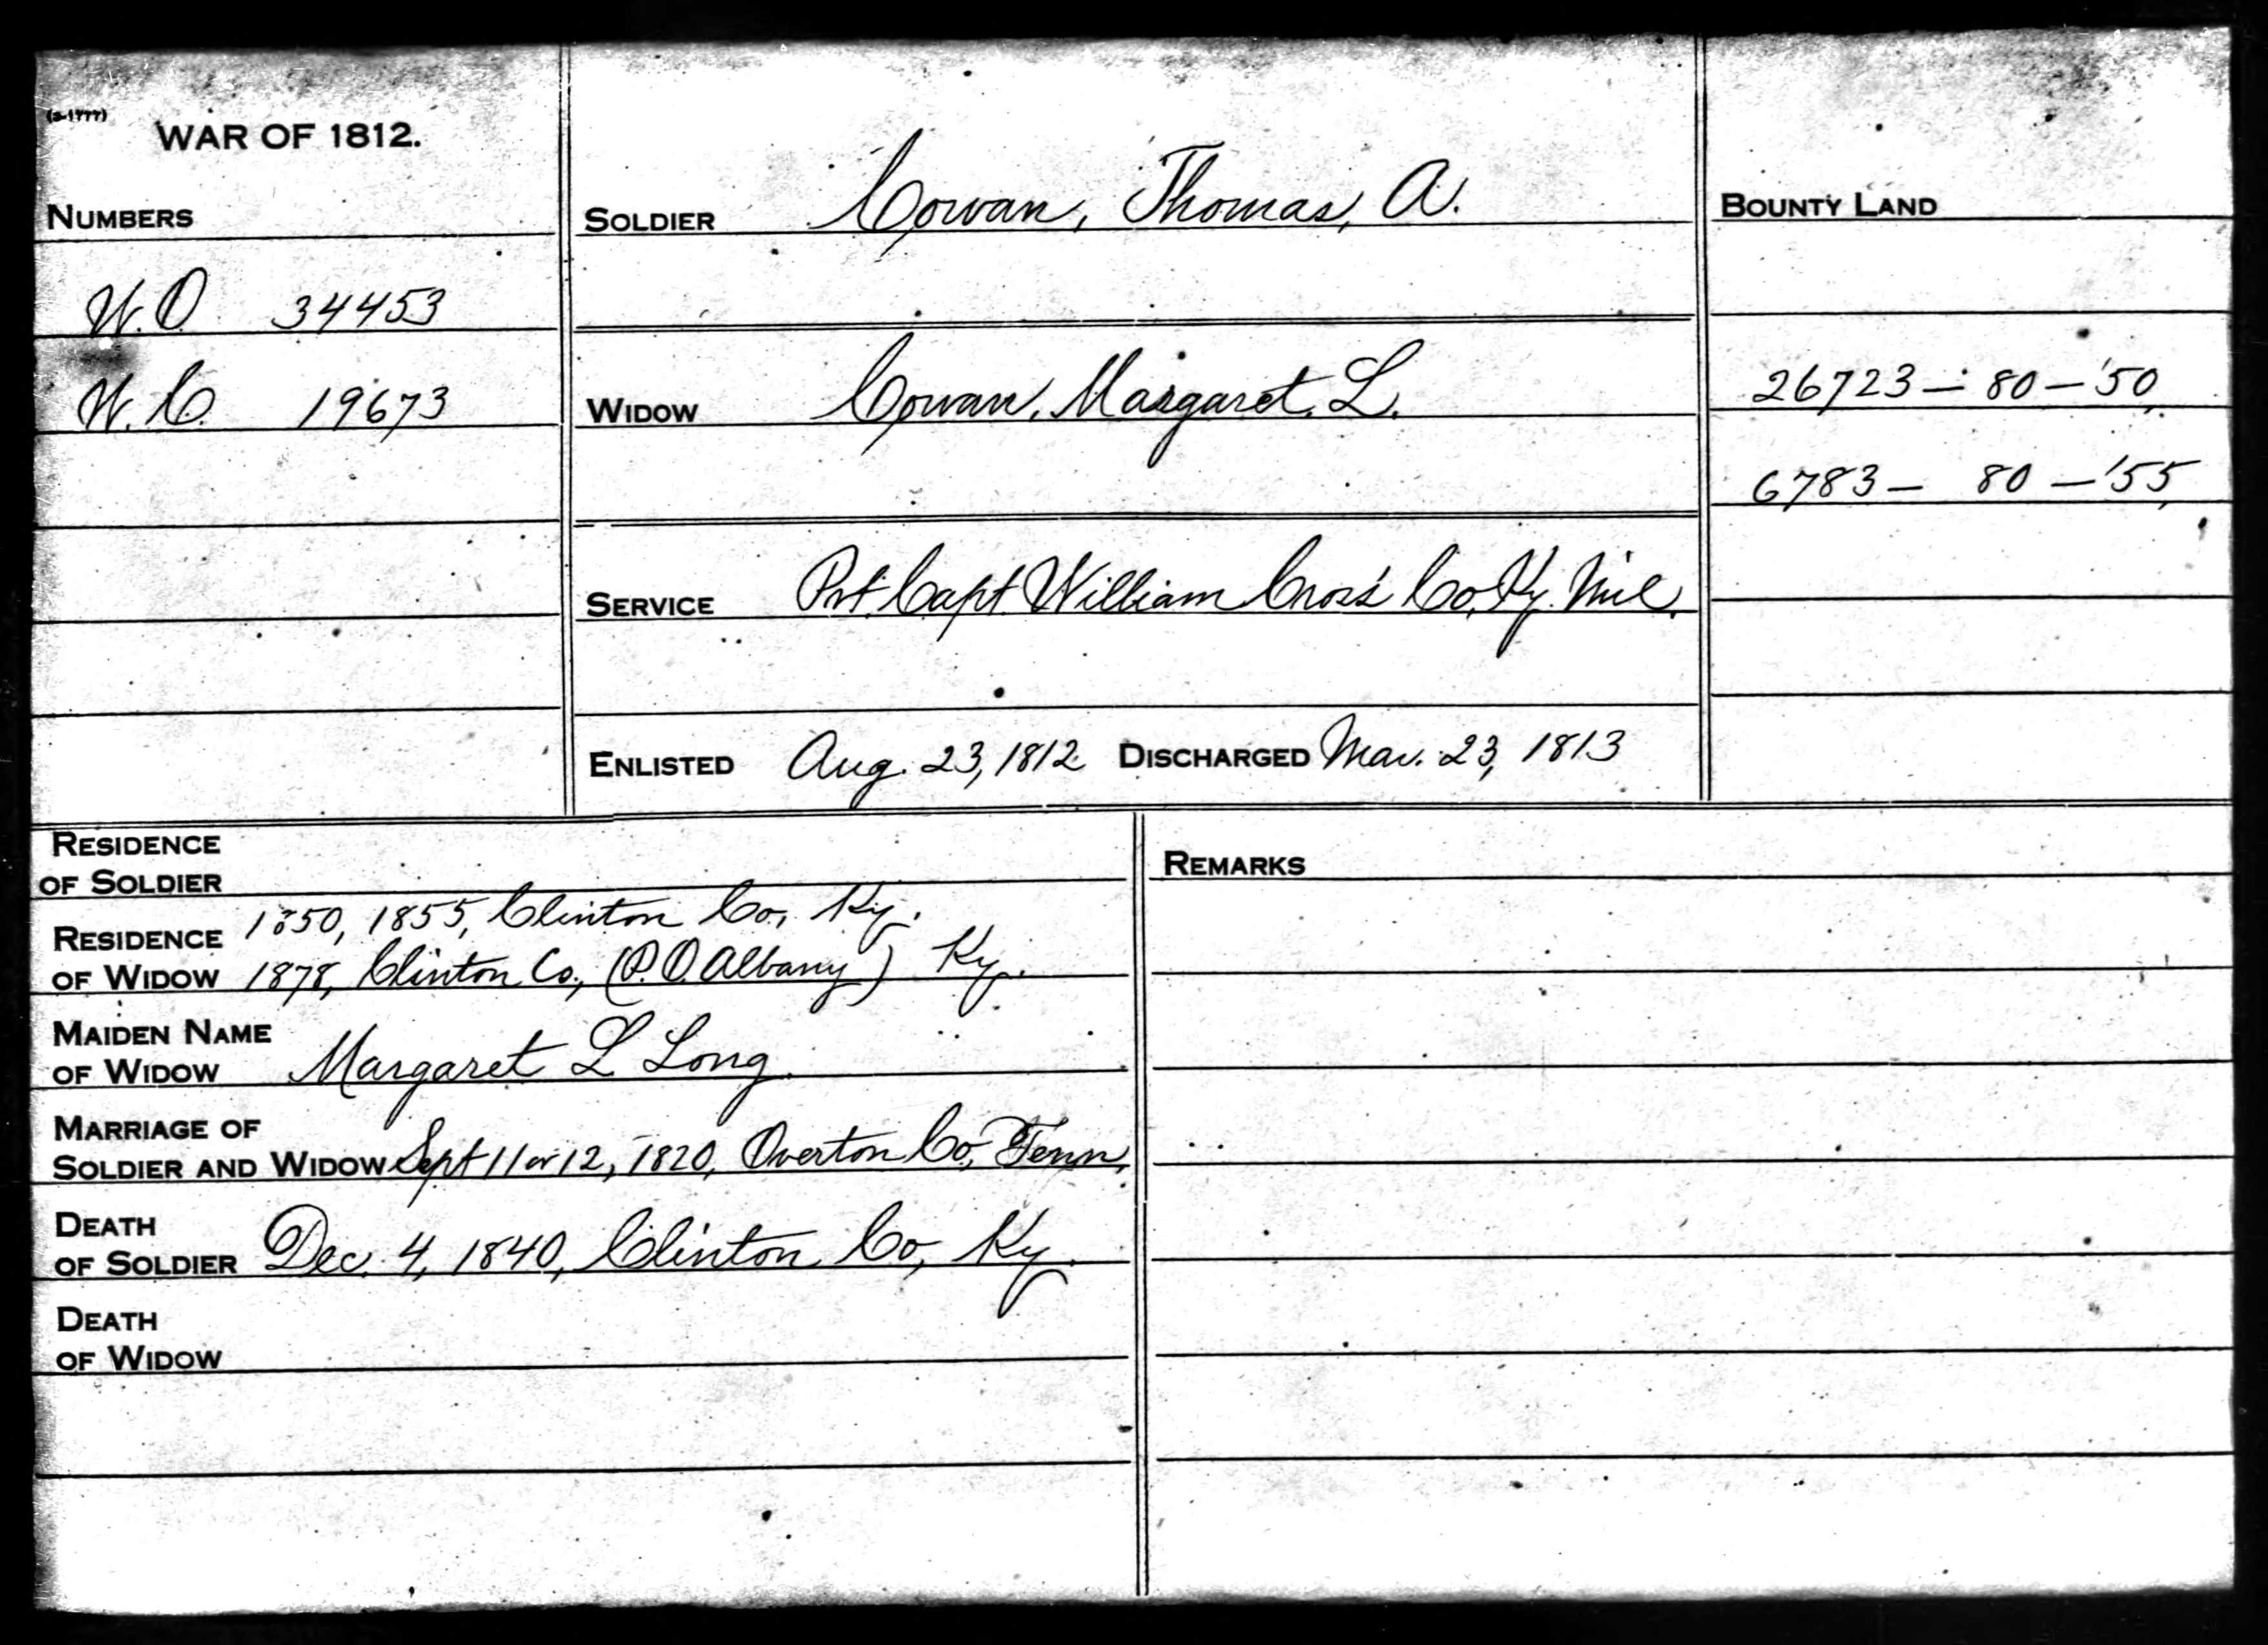 (3-1777)
WAR OF 1812.
NUMBERS
W.O. 34453
W.C. 19673
SOLDIER Cowan, Thomas, A.
WIDOW Cowan, Margaret. L.
SERVICE Pvt. Capt. William Cross' Co. Ky. Mil.
ENLISTED Aug. 23, 1812 DISCHARGED Mar. 23, 1813
BOUNTY LAND
26723 – 80 – '50
6783 – 80 – '55
RESIDENCE
OF SOLDIER
RESIDENCE 1850, 1855, Clinton Co., Ky.
OF WIDOW 1878, Clinton Co., (P.O. Albany) Ky.
MAIDEN NAME
OF WIDOW Margaret L Long.
MARRIAGE OF
SOLDIER AND WIDOW Sept 11 or 12, 1820, Overton Co., Tenn.
DEATH
OF SOLDIER Dec. 4, 1840, Clinton Co, Ky.
DEATH
OF WIDOW
REMARKS